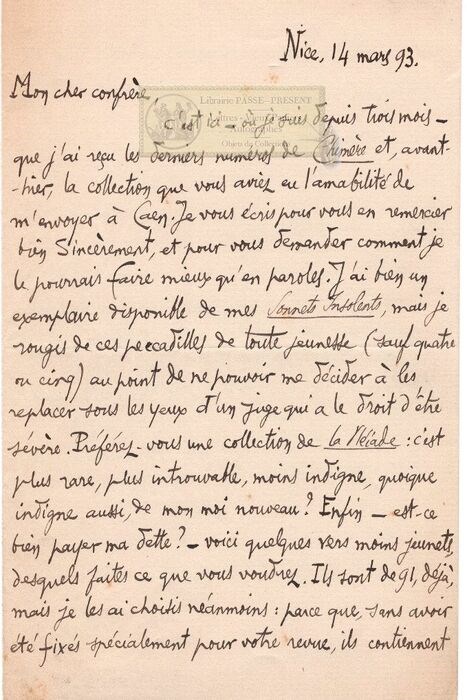 Nice, 14 mars 93.
Mon cher confrère
Librairie PASSE-PRESENT
c'est ici – où je suis depuis trois mois –
Autographes
que j'ai reçu les derniers numéros de Chimère et, avant-
Objets de Collection
-hier, la collection que vous aviez eu l'amabilité de
m'envoyer à Caen. Je vous écris pour vous en remercier
bien sincèrement, et pour vous demander comment je
le pourrais faire mieux qu'en paroles. J'ai bien un
exemplaire disponible de mes Sonnets Insolents, mais je
rougis de ces peccadilles de toute jeunesse (sauf quatre
ou cinq) au point de ne pouvoir me décider à les
replacer sous les yeux d'un juge qui a le droit d'être
sévère. Préférez-vous une collection de la Pléiade : c'est
plus rare, plus introuvable, moins indigne, quoique
indigne aussi, de mon moi nouveau ? Enfin – est-ce
bien payer ma dette ? – voici quelques vers moins jeunets,
desquels faites ce que vous voudrez. Ils sont de 91, déjà,
mais je les ai choisis néanmoins : parce que, sans avoir
été fixés spécialement pour votre revue, ils contiennent